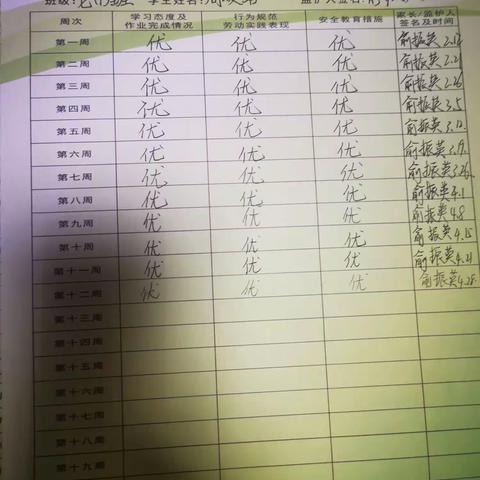 班级: 学生姓名: 监护人签名:
周次 学习态度及作业完成情况 行为规范劳动实践表现 安全教育措施 家长/监护人签名及时间
第一周 优 优 优 俞振英 2.12
第二周 优 优 优 俞振英 2.21
第三周 优 优 优 俞振英 2.26
第四周 优 优 优 俞振英 3.5
第五周 优 优 优 俞振英 3.12
第六周 优 优 优 俞振英 3.19
第七周 优 优 优 俞振英 3.26
第八周 优 优 优 俞振英 4.1
第九周 优 优 优 俞振英 4.8
第十周 优 优 优 俞振英 4.15
第十一周 优 优 优 俞振英 4.21
第十二周 优 优 优 俞振英 4.28
第十三周
第十四周
第十五周
第十六周
第十七周
第十八周
第十九周